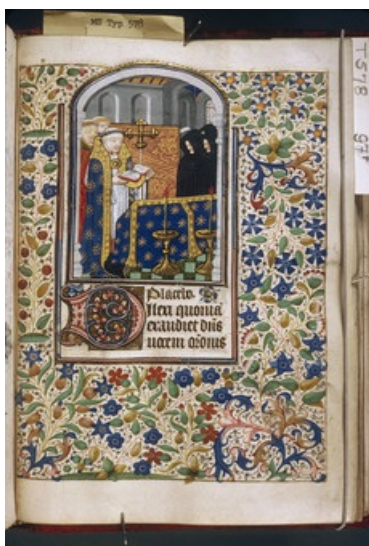 MS Typ 578
T578 97r
Placebo.
ilexi quonia
exaudiet dns
uocem oronis